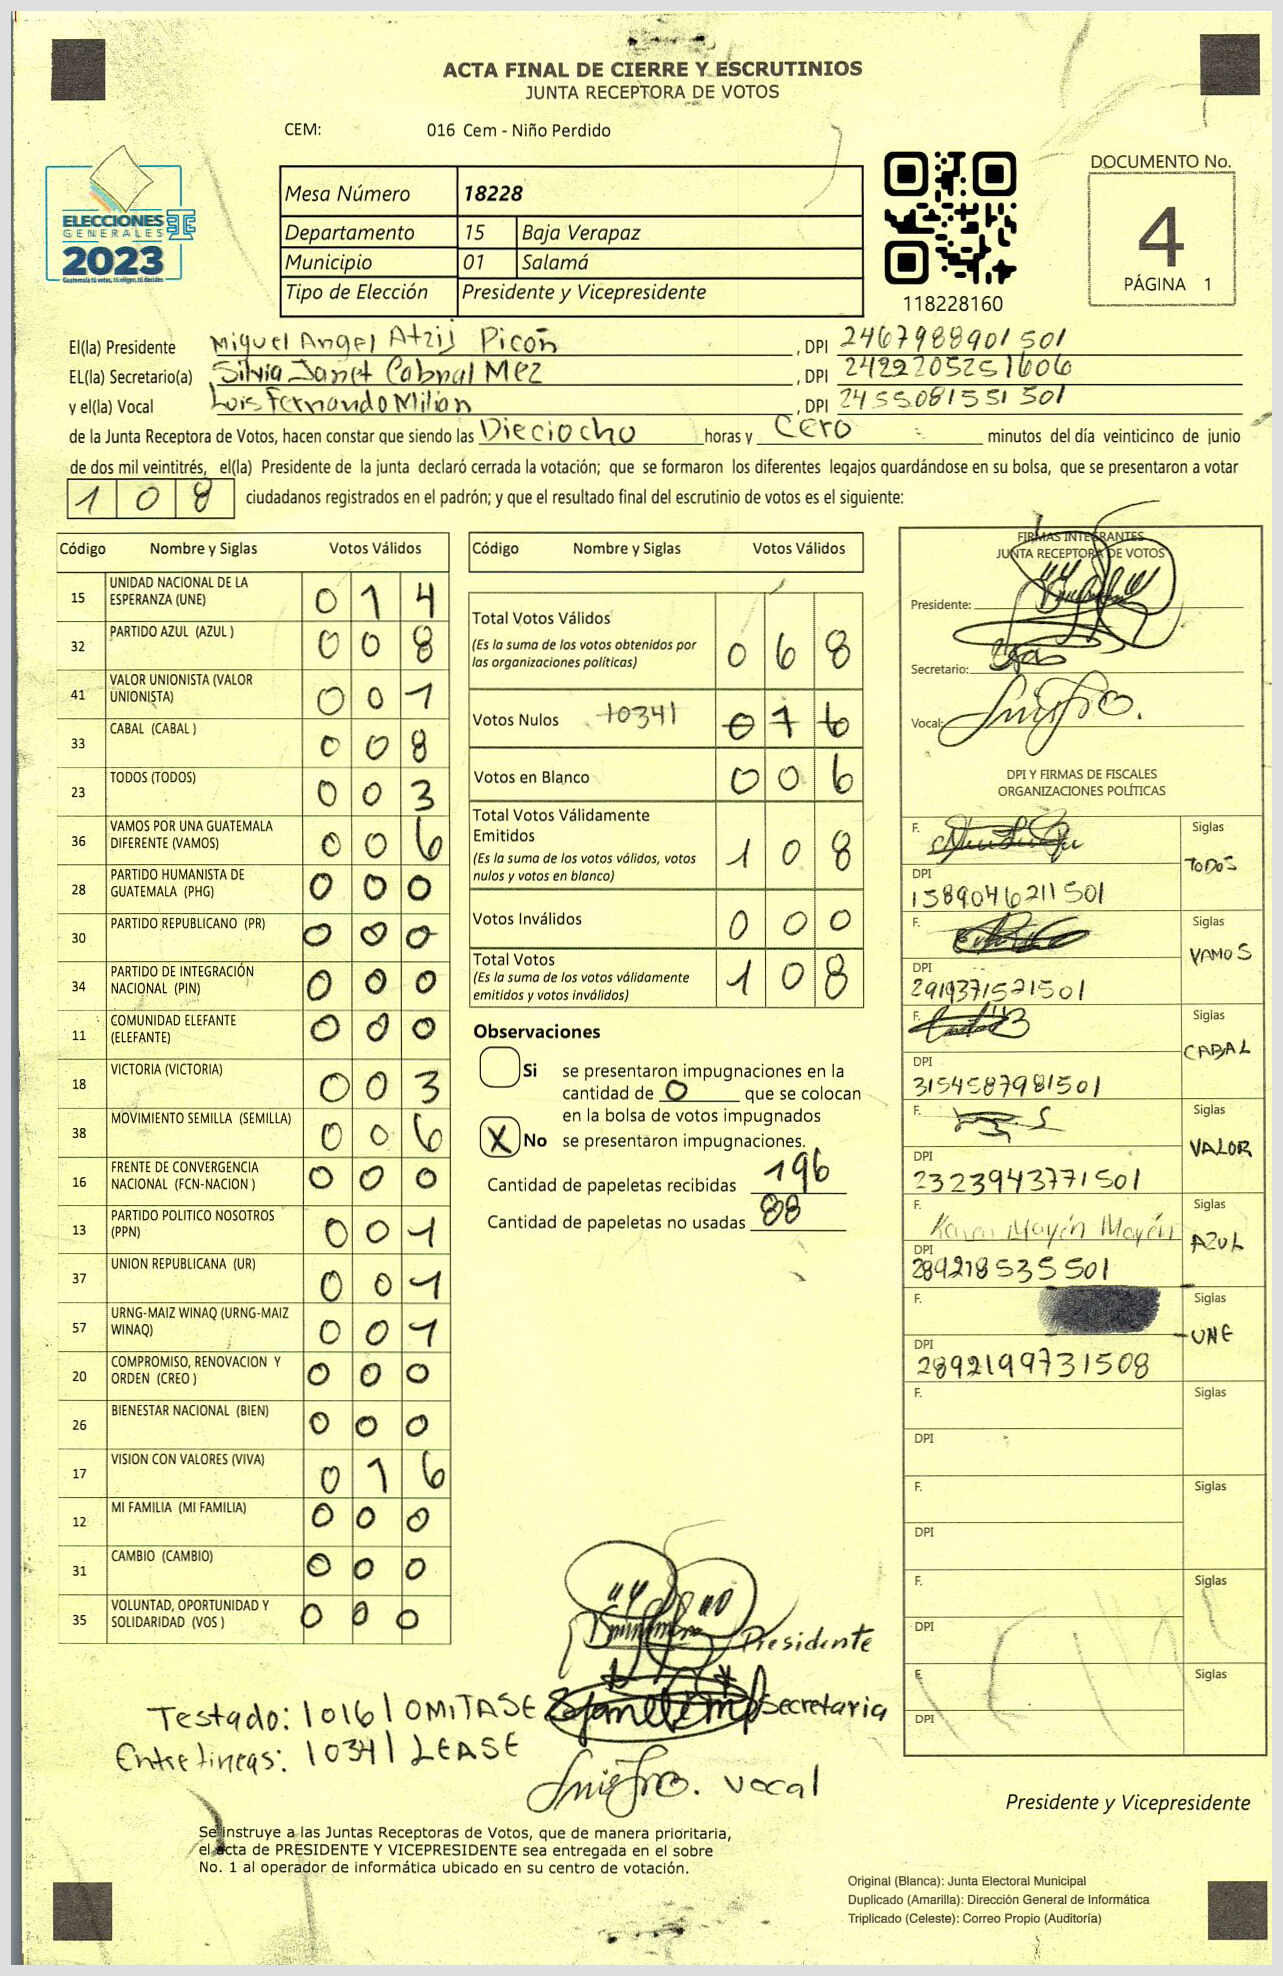 ACTA FINAL DE CIERRE Y ESCRUTINIOS
JUNTA RECEPTORA DE VOTOS
CEM: 016 Cem - Niño Perdido
ELECCIONES
GENERALES
2023
Guatemala tú votas, tú eliges, tú decides
Mesa Número 18228
Departamento 15 Baja Verapaz
Municipio 01 Salamá
Tipo de Elección Presidente y Vicepresidente
118228160
DOCUMENTO No.
4
PÁGINA 1
El(la) Presidente Miguel Angel Atzij Picón, DPI 2467988901501
EL(la) Secretario(a) Silvia Janet Cabnal Mez, DPI 2422205251606
y el(la) Vocal Luis Fernando Milian, DPI 2455081551501
de la Junta Receptora de Votos, hacen constar que siendo las Dieciocho horas y Cero minutos del día veinticinco de junio
de dos mil veintitrés, el(la) Presidente de la junta declaró cerrada la votación; que se formaron los diferentes legajos guardándose en su bolsa, que se presentaron a votar
108 ciudadanos registrados en el padrón; y que el resultado final del escrutinio de votos es el siguiente:
Código Nombre y Siglas Votos Válidos
15 UNIDAD NACIONAL DE LA ESPERANZA (UNE) 014
32 PARTIDO AZUL (AZUL ) 008
41 VALOR UNIONISTA (VALOR UNIONISTA) 001
33 CABAL (CABAL ) 008
23 TODOS (TODOS) 003
36 VAMOS POR UNA GUATEMALA DIFERENTE (VAMOS) 006
28 PARTIDO HUMANISTA DE GUATEMALA (PHG) 000
30 PARTIDO REPUBLICANO (PR) 000
34 PARTIDO DE INTEGRACIÓN NACIONAL (PIN) 000
11 COMUNIDAD ELEFANTE (ELEFANTE) 000
18 VICTORIA (VICTORIA) 003
38 MOVIMIENTO SEMILLA (SEMILLA) 006
16 FRENTE DE CONVERGENCIA NACIONAL (FCN-NACION ) 000
13 PARTIDO POLITICO NOSOTROS (PPN) 001
37 UNION REPUBLICANA (UR) 001
57 URNG-MAIZ WINAQ (URNG-MAIZ WINAQ) 001
20 COMPROMISO, RENOVACION Y ORDEN (CREO ) 000
26 BIENESTAR NACIONAL (BIEN) 000
17 VISION CON VALORES (VIVA) 016
12 MI FAMILIA (MI FAMILIA) 000
31 CAMBIO (CAMBIO) 000
35 VOLUNTAD, OPORTUNIDAD Y SOLIDARIDAD (VOS ) 000
Código Nombre y Siglas Votos Válidos
Total Votos Válidos 068
(Es la suma de los votos obtenidos por
las organizaciones políticas)
Votos Nulos 10341 016
Votos en Blanco 006
Total Votos Válidamente
Emitidos 108
(Es la suma de los votos válidos, votos
nulos y votos en blanco)
Votos Inválidos 000
Total Votos 108
(Es la suma de los votos válidamente
emitidos y votos inválidos)
Observaciones
Si se presentaron impugnaciones en la
cantidad de 0 que se colocan
en la bolsa de votos impugnados
X No se presentaron impugnaciones.
Cantidad de papeletas recibidas 196
Cantidad de papeletas no usadas 88
FIRMAS INTEGRANTES
JUNTA RECEPTORA DE VOTOS
Presidente:
Secretario:
Vocal:
DPI Y FIRMAS DE FISCALES
ORGANIZACIONES POLÍTICAS
F. Siglas TODOS
DPI 1589046211501
F. Siglas VAMOS
DPI 2919371521501
F. Siglas CABAL
DPI 3154587981501
F. Siglas VALOR
DPI 2323943771501
F. Karen Mayén Mayén Siglas AZUL
DPI 289218535501
F. Siglas UNE
DPI 2892199731508
F. Siglas
DPI
F. Siglas
DPI
F. Siglas
DPI
F. Siglas
DPI
Presidente
Testado: |016| OMITASE Secretaria
Entre lineas: |034| LEASE
Vocal
Presidente y Vicepresidente
Se instruye a las Juntas Receptoras de Votos, que de manera prioritaria,
el acta de PRESIDENTE Y VICEPRESIDENTE sea entregada en el sobre
No. 1 al operador de informática ubicado en su centro de votación.
Original (Blanca): Junta Electoral Municipal
Duplicado (Amarilla): Dirección General de Informática
Triplicado (Celeste): Correo Propio (Auditoría)